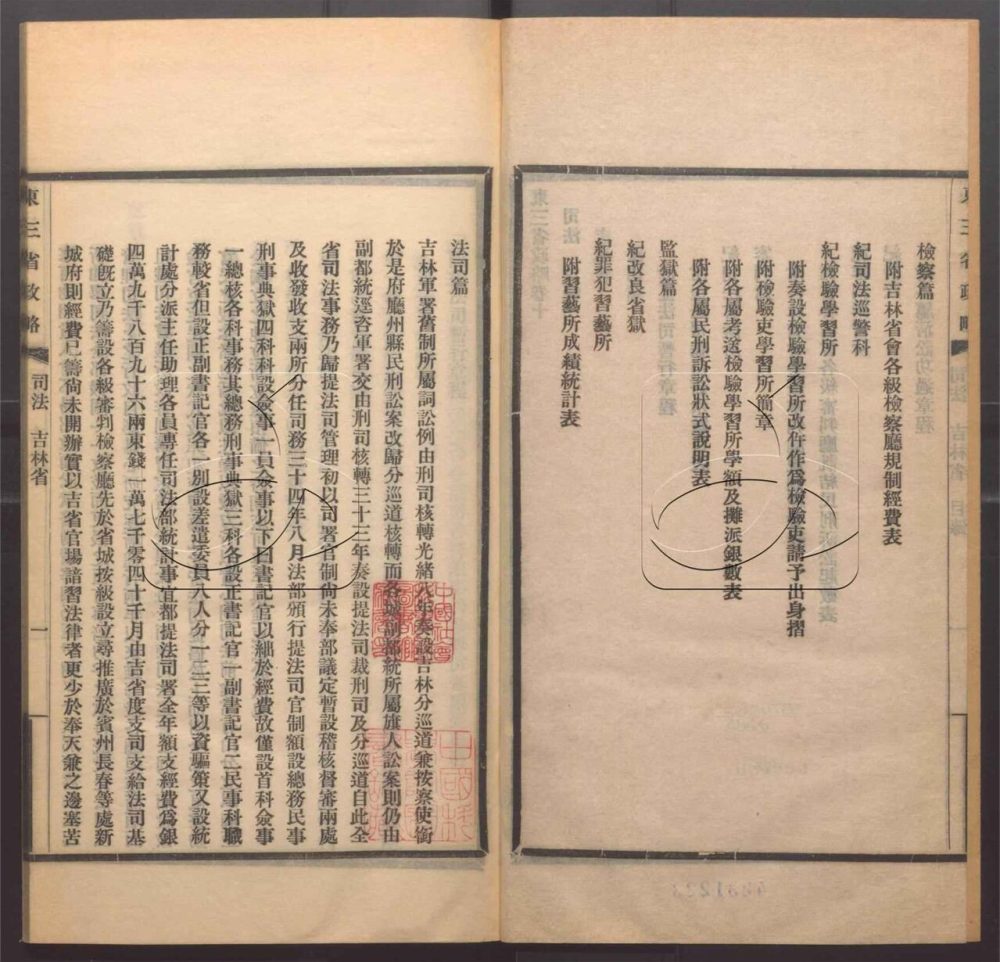 檢察篇
附吉林省會各級檢察廳規制經費表
紀司法巡警科
紀檢驗學習所
附奏設檢驗學習所改仵作爲檢驗吏請予出身摺
附檢驗吏學習所簡章
附各屬考送檢驗學習所學額及攤派銀數表
附各屬民刑訴訟狀式說明表
監獄篇
紀改良省獄
紀罪犯習藝所
附習藝所成績統計表
法司篇
吉林軍署舊制所屬詞訟例由刑司核轉光緒八年奏設吉林分巡道兼按察使銜
於是府廳州縣民刑訟案改歸分巡道核轉而各城副都統所屬旗人訟案則仍由
副都統逕咨軍署交由刑司核轉三十三年奏設提法司裁刑司及分巡道自此全
省司法事務乃歸提法司管理初以司署官制尙未奉部議定暫設稽核督審兩處
及收發收支兩所分任司務三十四年八月法部頒行提法司官制額設總務民事
刑事典獄四科科設僉事一員僉事以下曰書記官以絀於經費故僅設首科僉事
一總核各科事務其總務刑事典獄三科各設正書記官一副書記官二民事科職
務較省但設正副書記官各一別設差遣委員八人分一二三等以資驅策又設統
計處分派主任助理各員專任司法部統計事宜都提法司署全年額支經費爲銀
四萬九千八百九十六兩東錢一萬七千零四十千月由吉省度支司支給法司基
礎旣立乃籌設各級審判檢察廳先於省城按級設立尋推廣於賓州長春等處新
城府則經費已籌尙未開辦實以吉省官場諳習法律者更少於奉天兼之邊塞苦
東三省政略
司法 吉林省
一